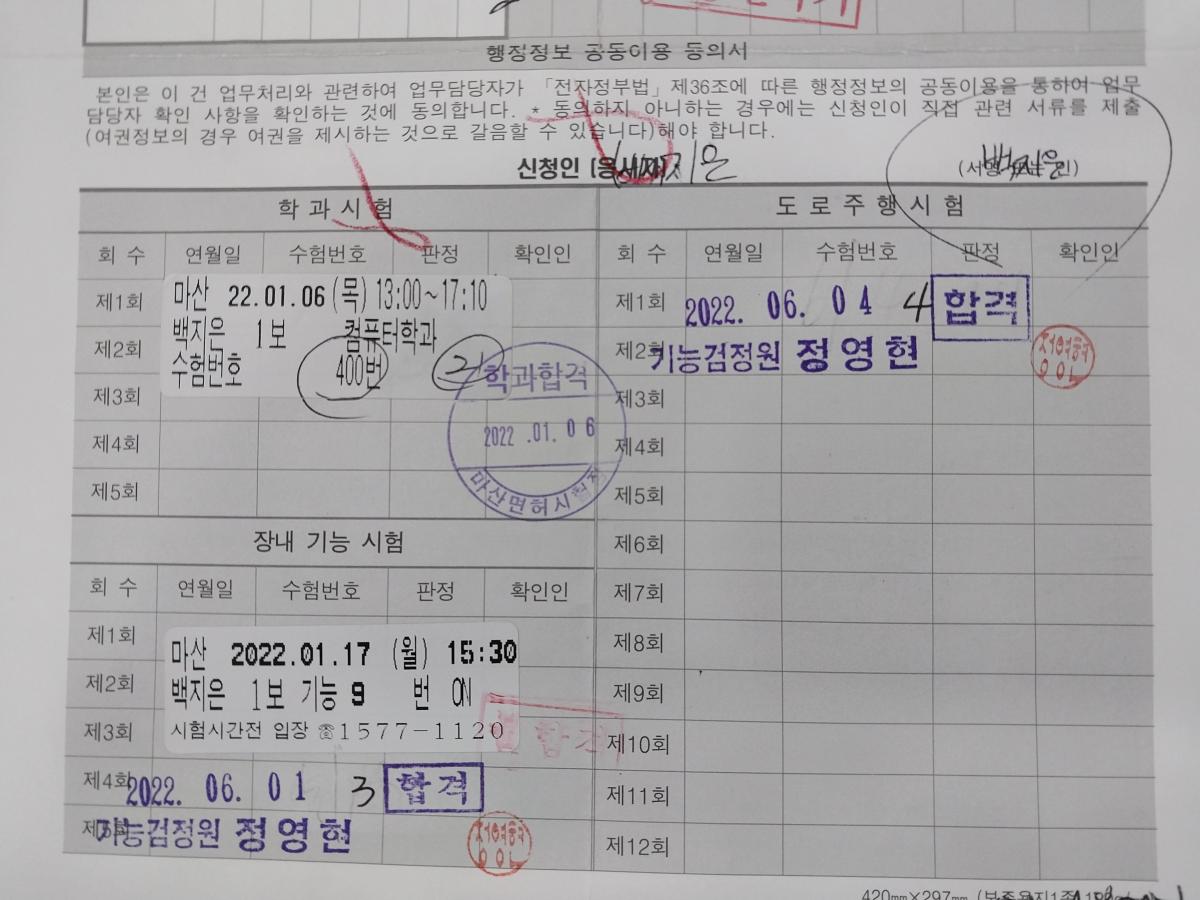 행정정보 공동이용 동의서
본인은 이 건 업무처리와 관련하여 업무담당자가 「전자정부법」 제36조에 따른 행정정보의 공동이용을 통하여 업무
담당자 확인 사항을 확인하는 것에 동의합니다. * 동의하지 아니하는 경우에는 신청인이 직접 관련 서류를 제출
(여권정보의 경우 여권을 제시하는 것으로 갈음할 수 있습니다)해야 합니다.
신청인 [응시자] 백지은 (서명 또는 인) 백지은
학 과 시 험
회 수 연월일 수험번호 판정 확인인
제1회 마산 22.01.06 (목) 13:00~17:10
제2회 백지은 1보 컴퓨터학과
수험번호 400번
제3회
학과합격
2022 .01. 06
마산면허시험장
제4회
제5회
장내 기능 시험
회 수 연월일 수험번호 판정 확인인
제1회 마산 2022.01.17 (월) 15:30
제2회 백지은 1보 기능 9 번 ON
제3회 시험시간전 입장 ☏1577-1120
불합격
제4회 2022. 06. 01 3 합격
제5회 기능검정원 정영현
도 로 주 행 시 험
회 수 연월일 수험번호 판정 확인인
제1회 2022. 06. 04 4 합격
제2회 기능검정원 정영현
제3회
제4회
제5회
제6회
제7회
제8회
제9회
제10회
제11회
제12회